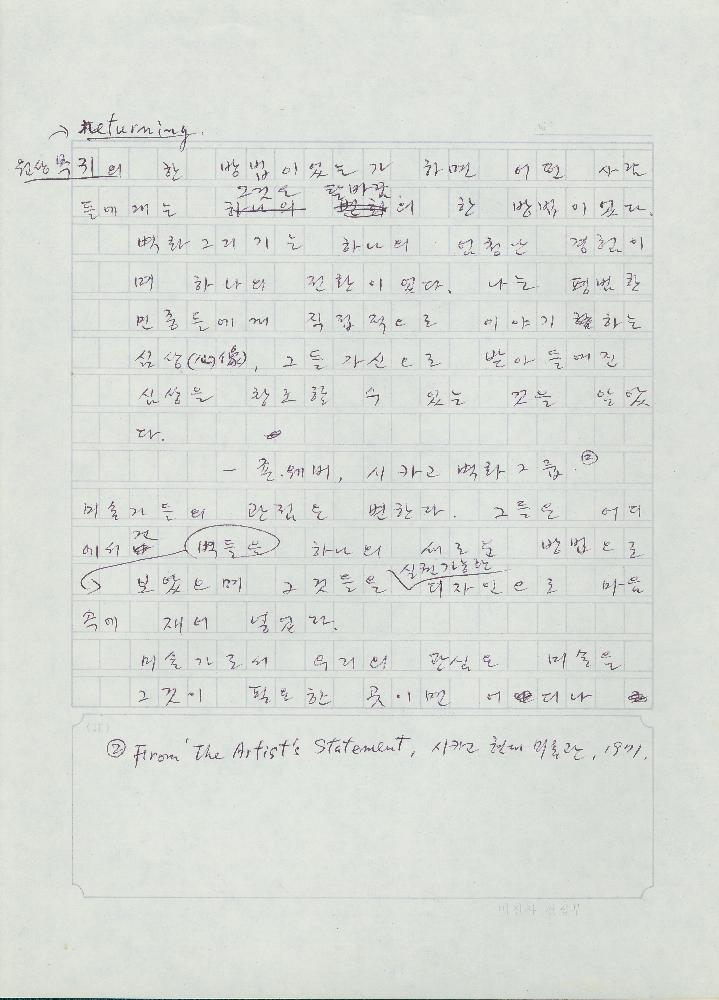 Returning.
원상복귀의 한 방법이었는가 하면 어떤 사람
그것은 탈바꿈
들에게는 하나의 변화의 한 방법이었다.
벽화그리기는 하나의 엄청난 경험이
며 하나의 전환이었다. 나는 평범한
민중들에게 직접적으로 이야기하는
심상(心像), 그들 자신으로 받아들여진
심상을 창조할 수 있는 것을 알았
다.
— 존.웨버, 시카고 벽화그룹. ②
미술가들의 관점은 변한다. 그들은 어디
에서건 벽들을 하나의 새로운 방법으로
실현가능한
보았으며 그것들을 디자인으로 마음
속에 재어 넣었다.
미술가로서 우리의 관심은 미술을
그것이 필요한 곳이면 어디나
② From 'The Artist's Statement, 시카고 현대 미술관, 1971.